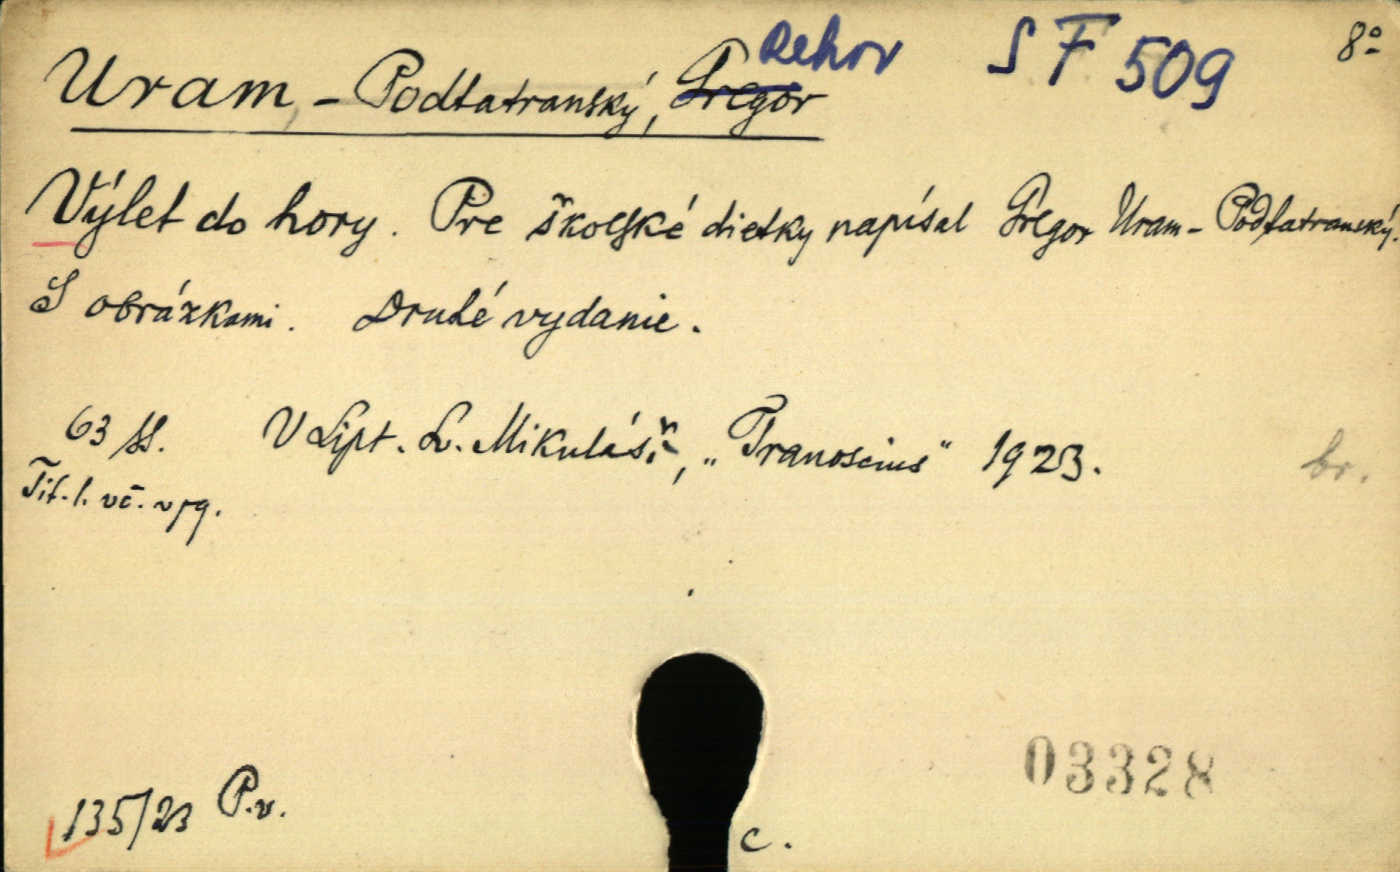 Rehor S F 509 8°
Uram - Podtatranský, Gregor
Výlet do hory. Pre školské dietky napísal Gregor Uram - Podtatranský.
S obrázkami. Druhé vydanie.
63 ss. V Lipt. Sv. Mikuláši, „Tranoscius" 1923. br.
Tit. l. vč. v pg.
03328
135/23 P.v.
c.